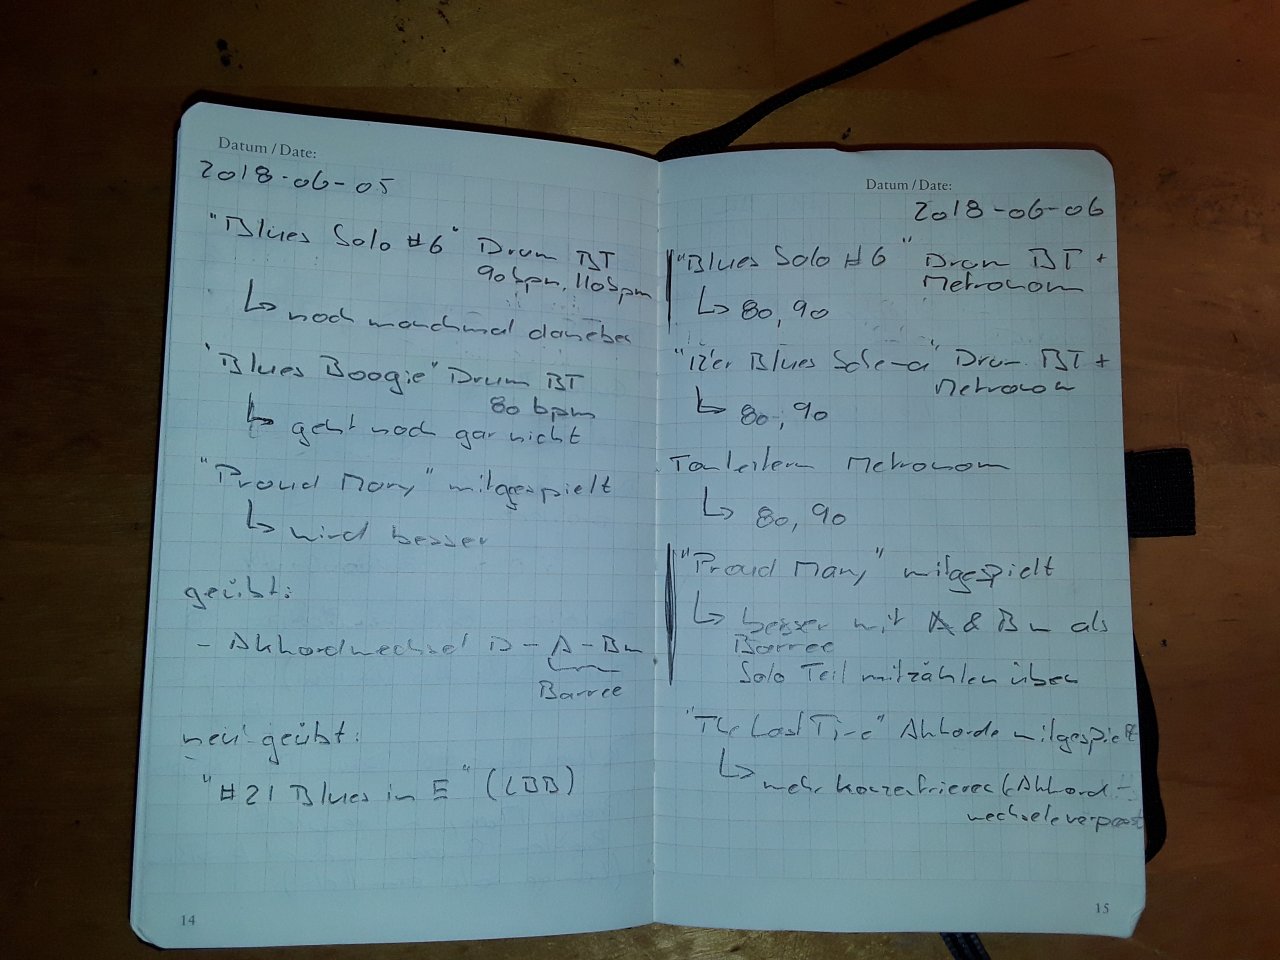 Datum / Date:
2018-06-05
"Blues Solo #6" Drum BT
90 bpm, 110 bpm
↳ noch manchmal daneben
"Blues Boogie" Drum BT
80 bpm
↳ geht noch gar nicht
"Proud Mary" mitgespielt
↳ wird besser
geübt:
- Akkordwechsel D - A - Bm
Barree
neu geübt:
"#21 Blues in E" (LBB)
14
Datum / Date:
2018-06-06
"Blues Solo #6" Drum BT +
Metronom
↳ 80, 90
"12'er Blues Schema" Drum BT +
Metronom
↳ 80, 90
Tonleitern Metronom
↳ 80, 90
"Proud Mary" mitgespielt
↳ besser mit A & Bm als
Barree
Solo Teil mitzählen üben
"The Last Time" Akkorde mitgespielt
↳ mehr konzentrieren (Akkord-
wechsele verpasst
15